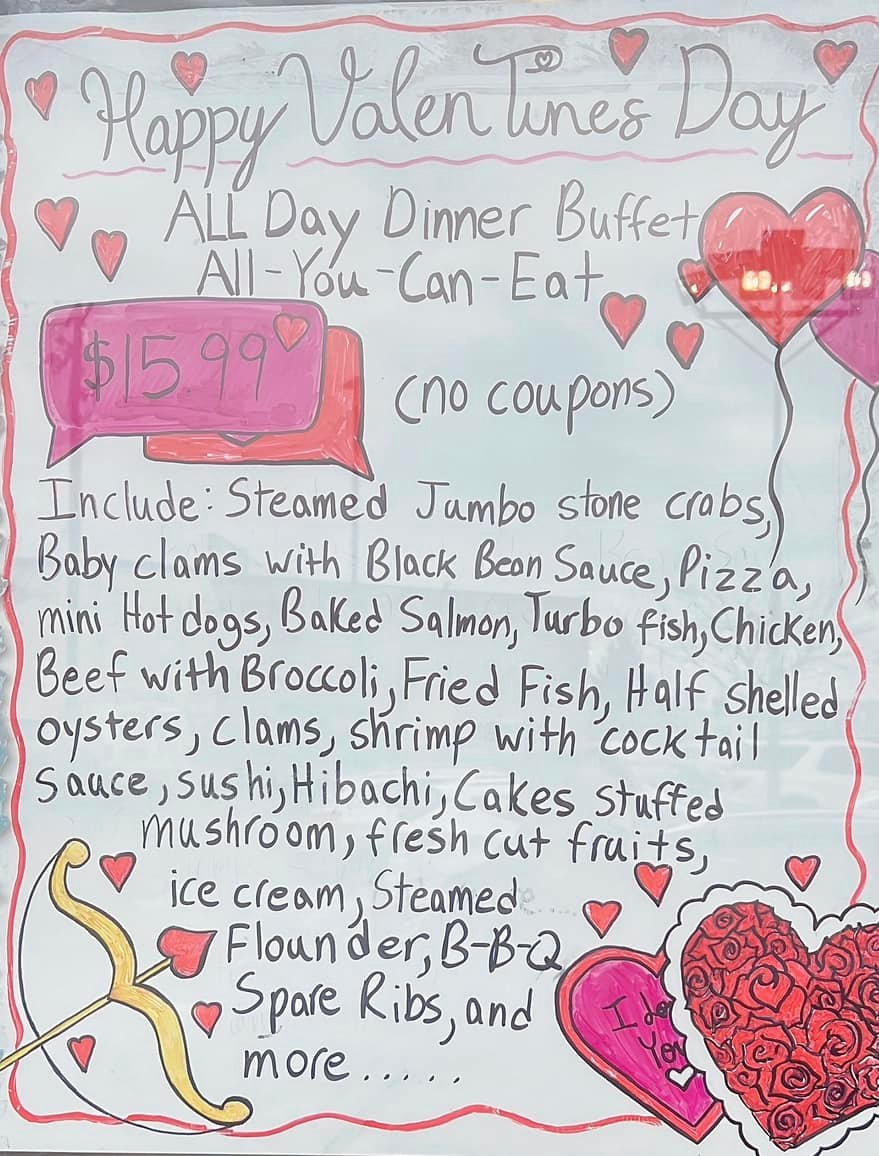 Happy Valentines Day
ALL Day Dinner Buffet
All-You-Can-Eat
$15.99
(no coupons)
Include: Steamed Jumbo stone crabs,
Baby clams with Black Bean Sauce, Pizza,
mini Hot dogs, Baked Salmon, Turbo fish, Chicken,
Beef with Broccoli, Fried Fish, Half shelled
oysters, clams, shrimp with cocktail
Sauce, sushi, Hibachi, Cakes stuffed
mushroom, fresh cut fruits,
ice cream, Steamed
Flounder, B-B-Q
Spare Ribs, and
more.....
I
You